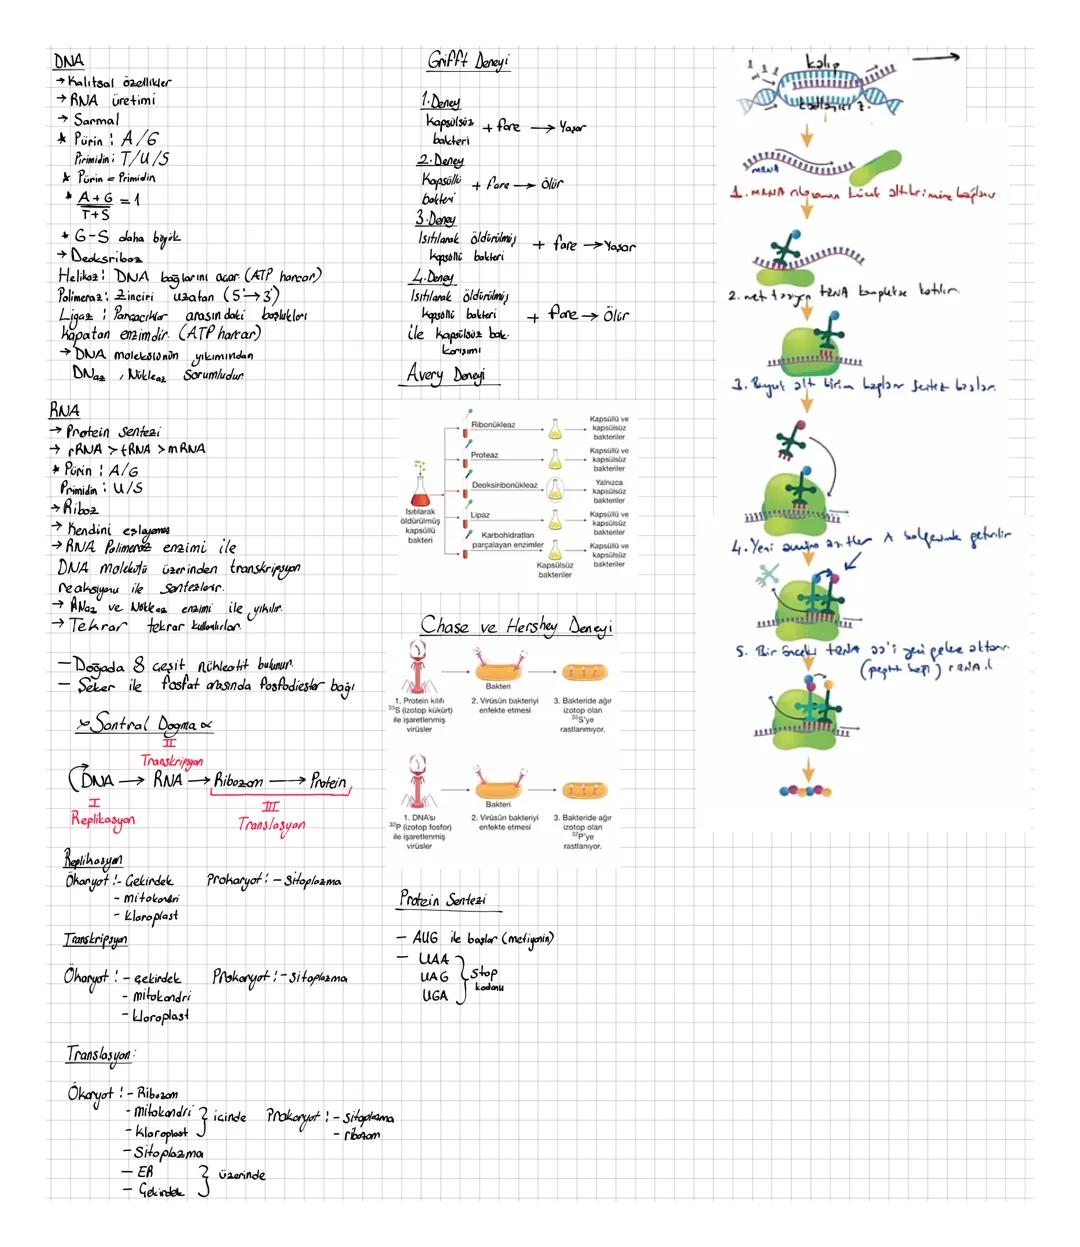 DNA
→ Kalıtsal özellikler
→ RNA üretimi
→ Sarmal
* Pürin : A/G
Pirimidin : T/U/S
* Pürin = Primidin
* A+G / T+S = 1
* G-S daha büyük
→ Deoksiriboz
Helikaz : DNA bağlarını açar. (ATP harcar)
Polimeraz : Zinciri uzatan (5'→3')
Ligaz : Parçacıklar arasındaki boşlukları
kapatan enzimdir. (ATP harcar)
→ DNA molekülünün yıkımından
DNaz, Nükleaz sorumludur
RNA
→ Protein sentezi
→ rRNA > tRNA > mRNA
* Pürin : A/G
Primidin : U/S
→ Riboz
→ Kendini eşleyemez
→ RNA Polimeraz enzimi ile
DNA molekülü üzerinden transkripsyon
reaksiyonu ile sentezlenir.
→ RNaz ve Nükleaz enzimi ile yıkılır.
→ Tekrar tekrar kullanılırlar.
— Doğada 8 çeşit nükleotit bulunur.
— Şeker ile fosfat arasında fosfodiester bağı
Santral Dogma
II
Transkripsyon
DNA → RNA → Ribozom → Protein
I
Replikasyon
III
Translasyon
Replikasyon
Ökaryot : - Çekirdek
- mitokondri
- kloroplast
Prokaryot : - Sitoplazma
Transkripsyon
Ökaryot : - çekirdek
- mitokondri
- kloroplast
Prokaryot : - Sitoplazma
Translasyon :
Ökaryot : - Ribozom
- mitokondri
- kloroplast
} içinde
- Sitoplazma
- ER
- Çekirdek
} üzerinde
Prokaryot : - Sitoplazma
- ribozom
Grifft Deneyi
1. Deney
Kapsülsüz bakteri + fare → Yaşar
2. Deney
Kapsüllü bakteri + fare → Ölür
3. Deney
Isıtılarak öldürülmüş kapsüllü bakteri + fare → Yaşar
4. Deney
Isıtılarak öldürülmüş
kapsüllü bakteri + fare → Ölür
ile kapsülsüz bak.
karışımı
Avery Deneyi
Isıtılarak
öldürülmüş
kapsüllü
bakteri
Ribonükleaz
Kapsüllü ve
kapsülsüz
bakteriler
Proteaz
Kapsüllü ve
kapsülsüz
bakteriler
Deoksiribonükleaz
Yalnızca
kapsülsüz
bakteriler
Lipaz
Kapsüllü ve
kapsülsüz
bakteriler
Karbohidratları
parçalayan enzimler
Kapsüllü ve
kapsülsüz
bakteriler
Kapsülsüz
bakteriler
Chase ve Hershey Deneyi
1. Protein kılıfı
³⁵S (izotop kükürt)
ile işaretlenmiş
virüsler
Bakteri
2. Virüsün bakteriyi
enfekte etmesi
3. Bakteride ağır
izotop olan
³⁵S'ye
rastlanmıyor.
1. DNA'sı
³²P (izotop fosfor)
ile işaretlenmiş
virüsler
Bakteri
2. Virüsün bakteriyi
enfekte etmesi
3. Bakteride ağır
izotop olan
³²P'ye
rastlanıyor.
Protein Sentezi
— AUG ile başlar (metiyonin)
— UAA
UAG
UGA
} Stop
kodonu
kalıp
mRNA
1. mRNA ribozomun küçük alt birimine bağlanır.
2. met taşıyan tRNA komplekse katılır.
3. Büyük alt birim bağlanır sentez başlar.
4. Yeni amino asitler A bölgesine getirilir
5. Bir önceki tRNA aa'i yeni gelene aktarır.
(peptit bağı) rRNA